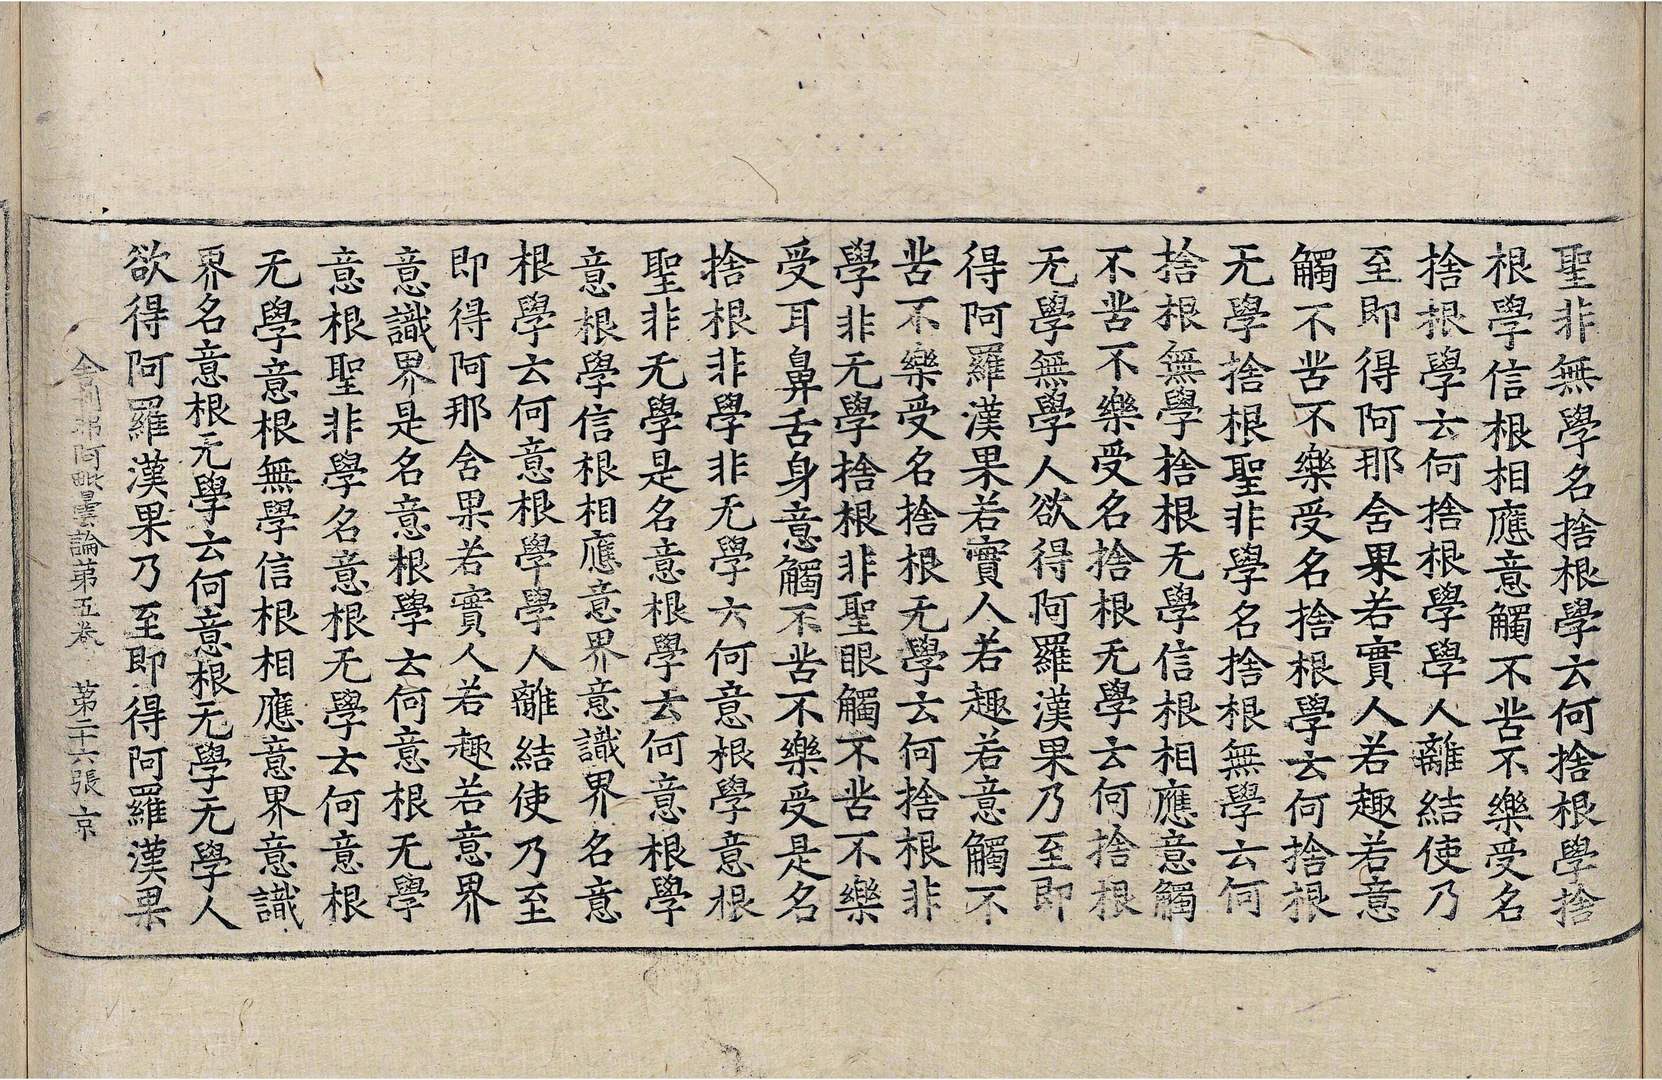 聖非無學名捨根學云何捨根學捨
根學信根相應意觸不苦不樂受名
捨根學云何捨根學學人離結使乃
至即得阿那舍果若實人若趣若意
觸不苦不樂受名捨根學云何捨根
无學捨根聖非學名捨根無學云何
捨根無學捨根无學信根相應意觸
不苦不樂受名捨根无學云何捨根
无學無學人欲得阿羅漢果乃至即
得阿羅漢果若實人若趣若意觸不
苦不樂受名捨根无學云何捨根非
學非无學捨根非聖眼觸不苦不樂
受耳鼻舌身意觸不苦不樂受是名
捨根非學非无學六何意根學意根
聖非无學是名意根學云何意根學
意根學信根相應意界意識界名意
根學云何意根學學人離結使乃至
即得阿那舍果若實人若趣若意界
意識界是名意根學云何意根无學
意根聖非學名意根无學云何意根
无學意根無學信根相應意界意識
界名意根无學云何意根无學无學人
欲得阿羅漢果乃至即得阿羅漢果
阿毗曇論第五卷 第二十六張 京